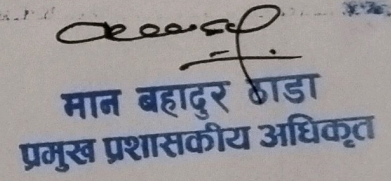 मान बहादुर ठाडा
प्रमुख प्रशासकीय अधिकृत